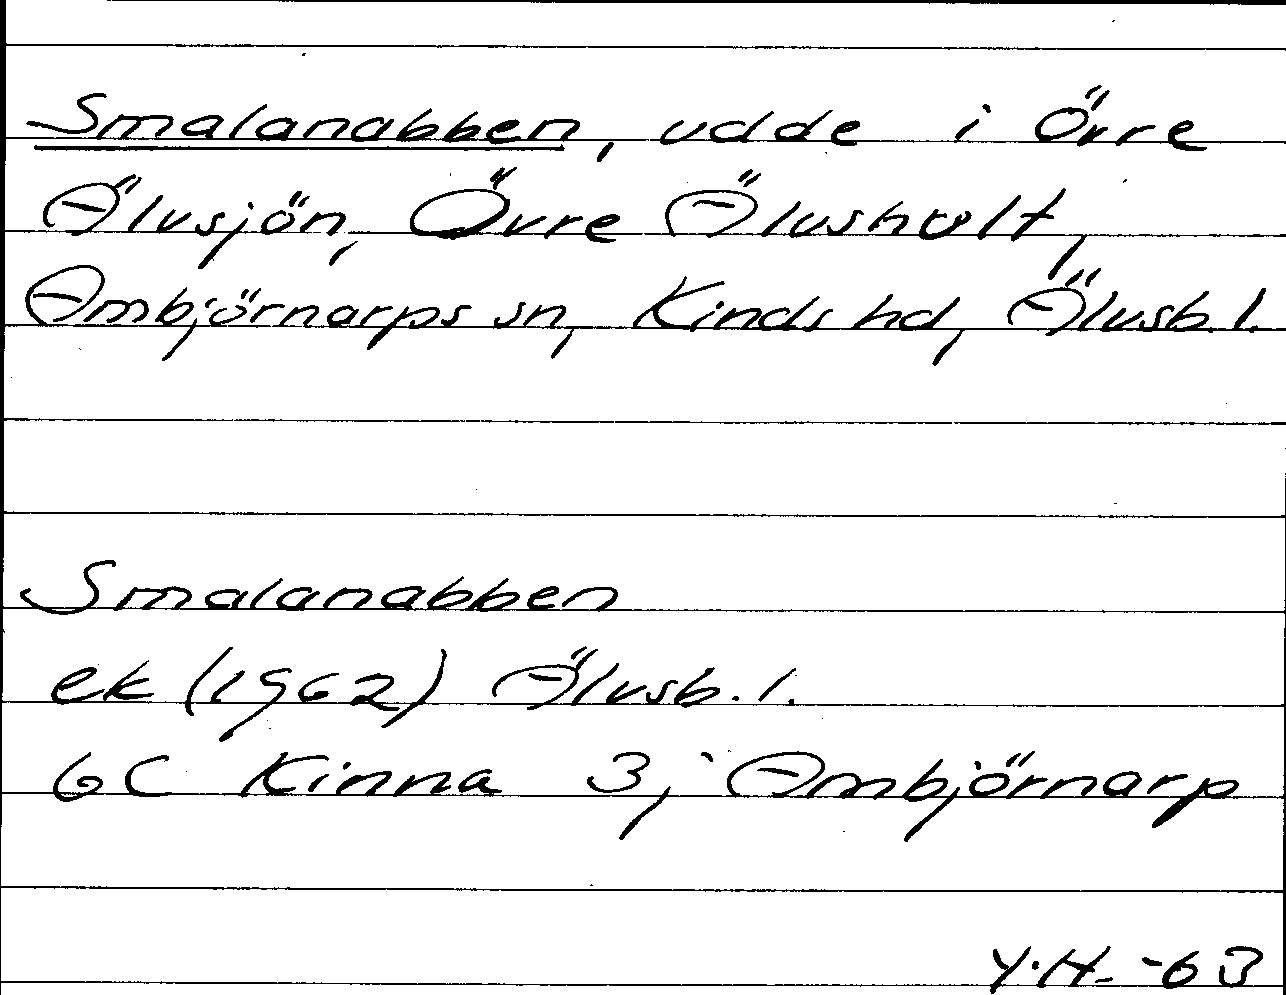 Smalanabben, udde i Övre
Älvsjön, Övre Älvshult,
Ambjörnarps sn, Kinds hd, Älvsb. l.
Smalanabben
ek (1962) Älvsb. l.
6C Kinna 3j Ambjörnarp
Y.H. -63